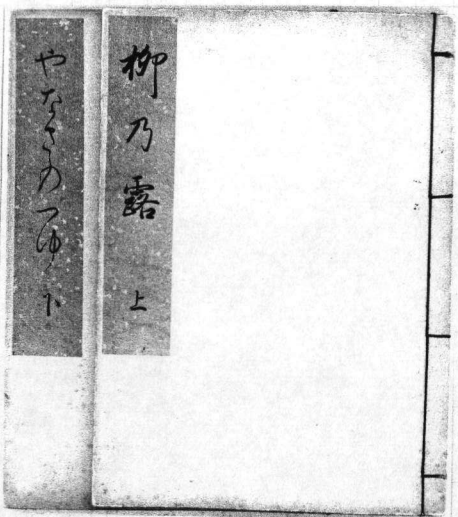 柳乃露 上
やなきのつゆ 下